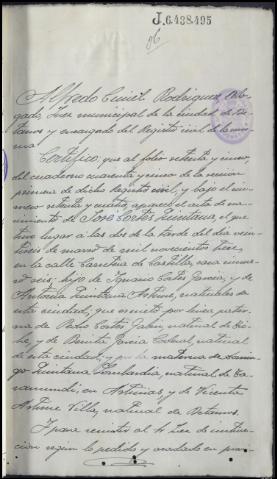 J.6.438.495
96
Alfredo Cuiñl Rodriguez, Abo-
gado, Juez municipal de la ciudad de Be-
tanzos y encargado del Registro civil de la mis-
ma
Certifico: que al folio setenta y cinco,
del cuaderno cuarenta y cinco de la seccion
primera de dicho Registro civil, y bajo el nú-
mero setenta y cuatro, aparece el acta de na-
cimiento de José Cortés Quintana, el que
tuvo lugar a las dos de la tarde del dia vein-
tiseis de marzo de mil novecientos trece,
en la calle Carretera de Castilla, casa núme-
ro seis, hijo de Ignacio Cortés Garcia, y de
Antonia Quintana naturales de
esta ciudad; que es nieto por linea pater-
na de Pedro Cortés natural de
y de Benita Garcia natural
de esta ciudad, y por la materna de Domin-
go Quintana natural de Ta-
ramundi, en Asturias, y de Vicenta
Villa, natural de Betanzos.
Y para remitir al Sr Juez de instruc-
cion segun lo pedido y acordado en provi-